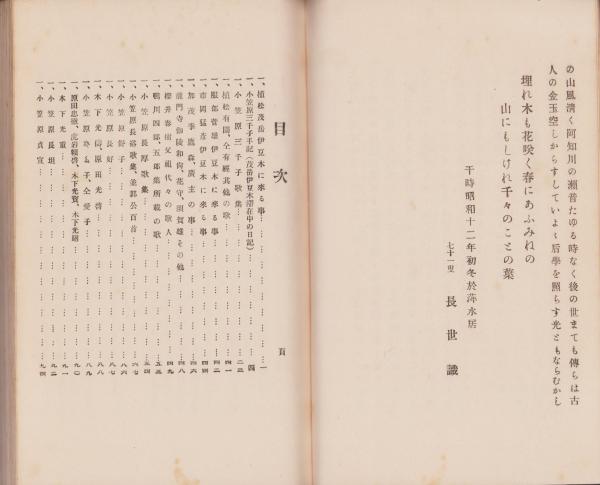 の山風淸く阿知川の瀨音たゆる時なく後の世まても傳らは古
人の金玉空しからすしていよ〻后學を照らす光ともならむかし
埋れ木も花咲く春にあふみねの
山にもしけれ千々のことの葉
于時昭和十二年初冬於亦水居
七十一叟　長世識
目次
頁
一、植松茂岳伊豆木に來る事……一
一、小笠原三千子手記（茂岳伊豆木滯在中の日記）……四
一、小笠原三千子歌集……二三
一、植松有園、仝有經其他の歌……三一
一、服部菅雄伊豆木に來る事……四二
一、市岡猛彥伊豆木に來る事……四四
一、加茂季鷹、森廣主の事……四六
一、龍門寺伽陵和尙、花守、須賀雄その他……四八
一、櫻井春樹父祖代々の歌人……四九
一、鴨川四郞、五郞集所載の歌……五三
一、小笠原長厚歌集……五四
一、小笠原長裕歌集、並鄙公百首……六三
一、小笠原鋅子……八六
一、小笠原長好……八七
一、木下光儔、原田光啓……八八
一、小笠原ゆも子、仝愛子……八九
一、原田忠徹、虎岩賴啓、木下光寶、木下光昭……九〇
一、木下光重……九一
一、小笠原長坦……九二
一、小笠原貞宣……九四